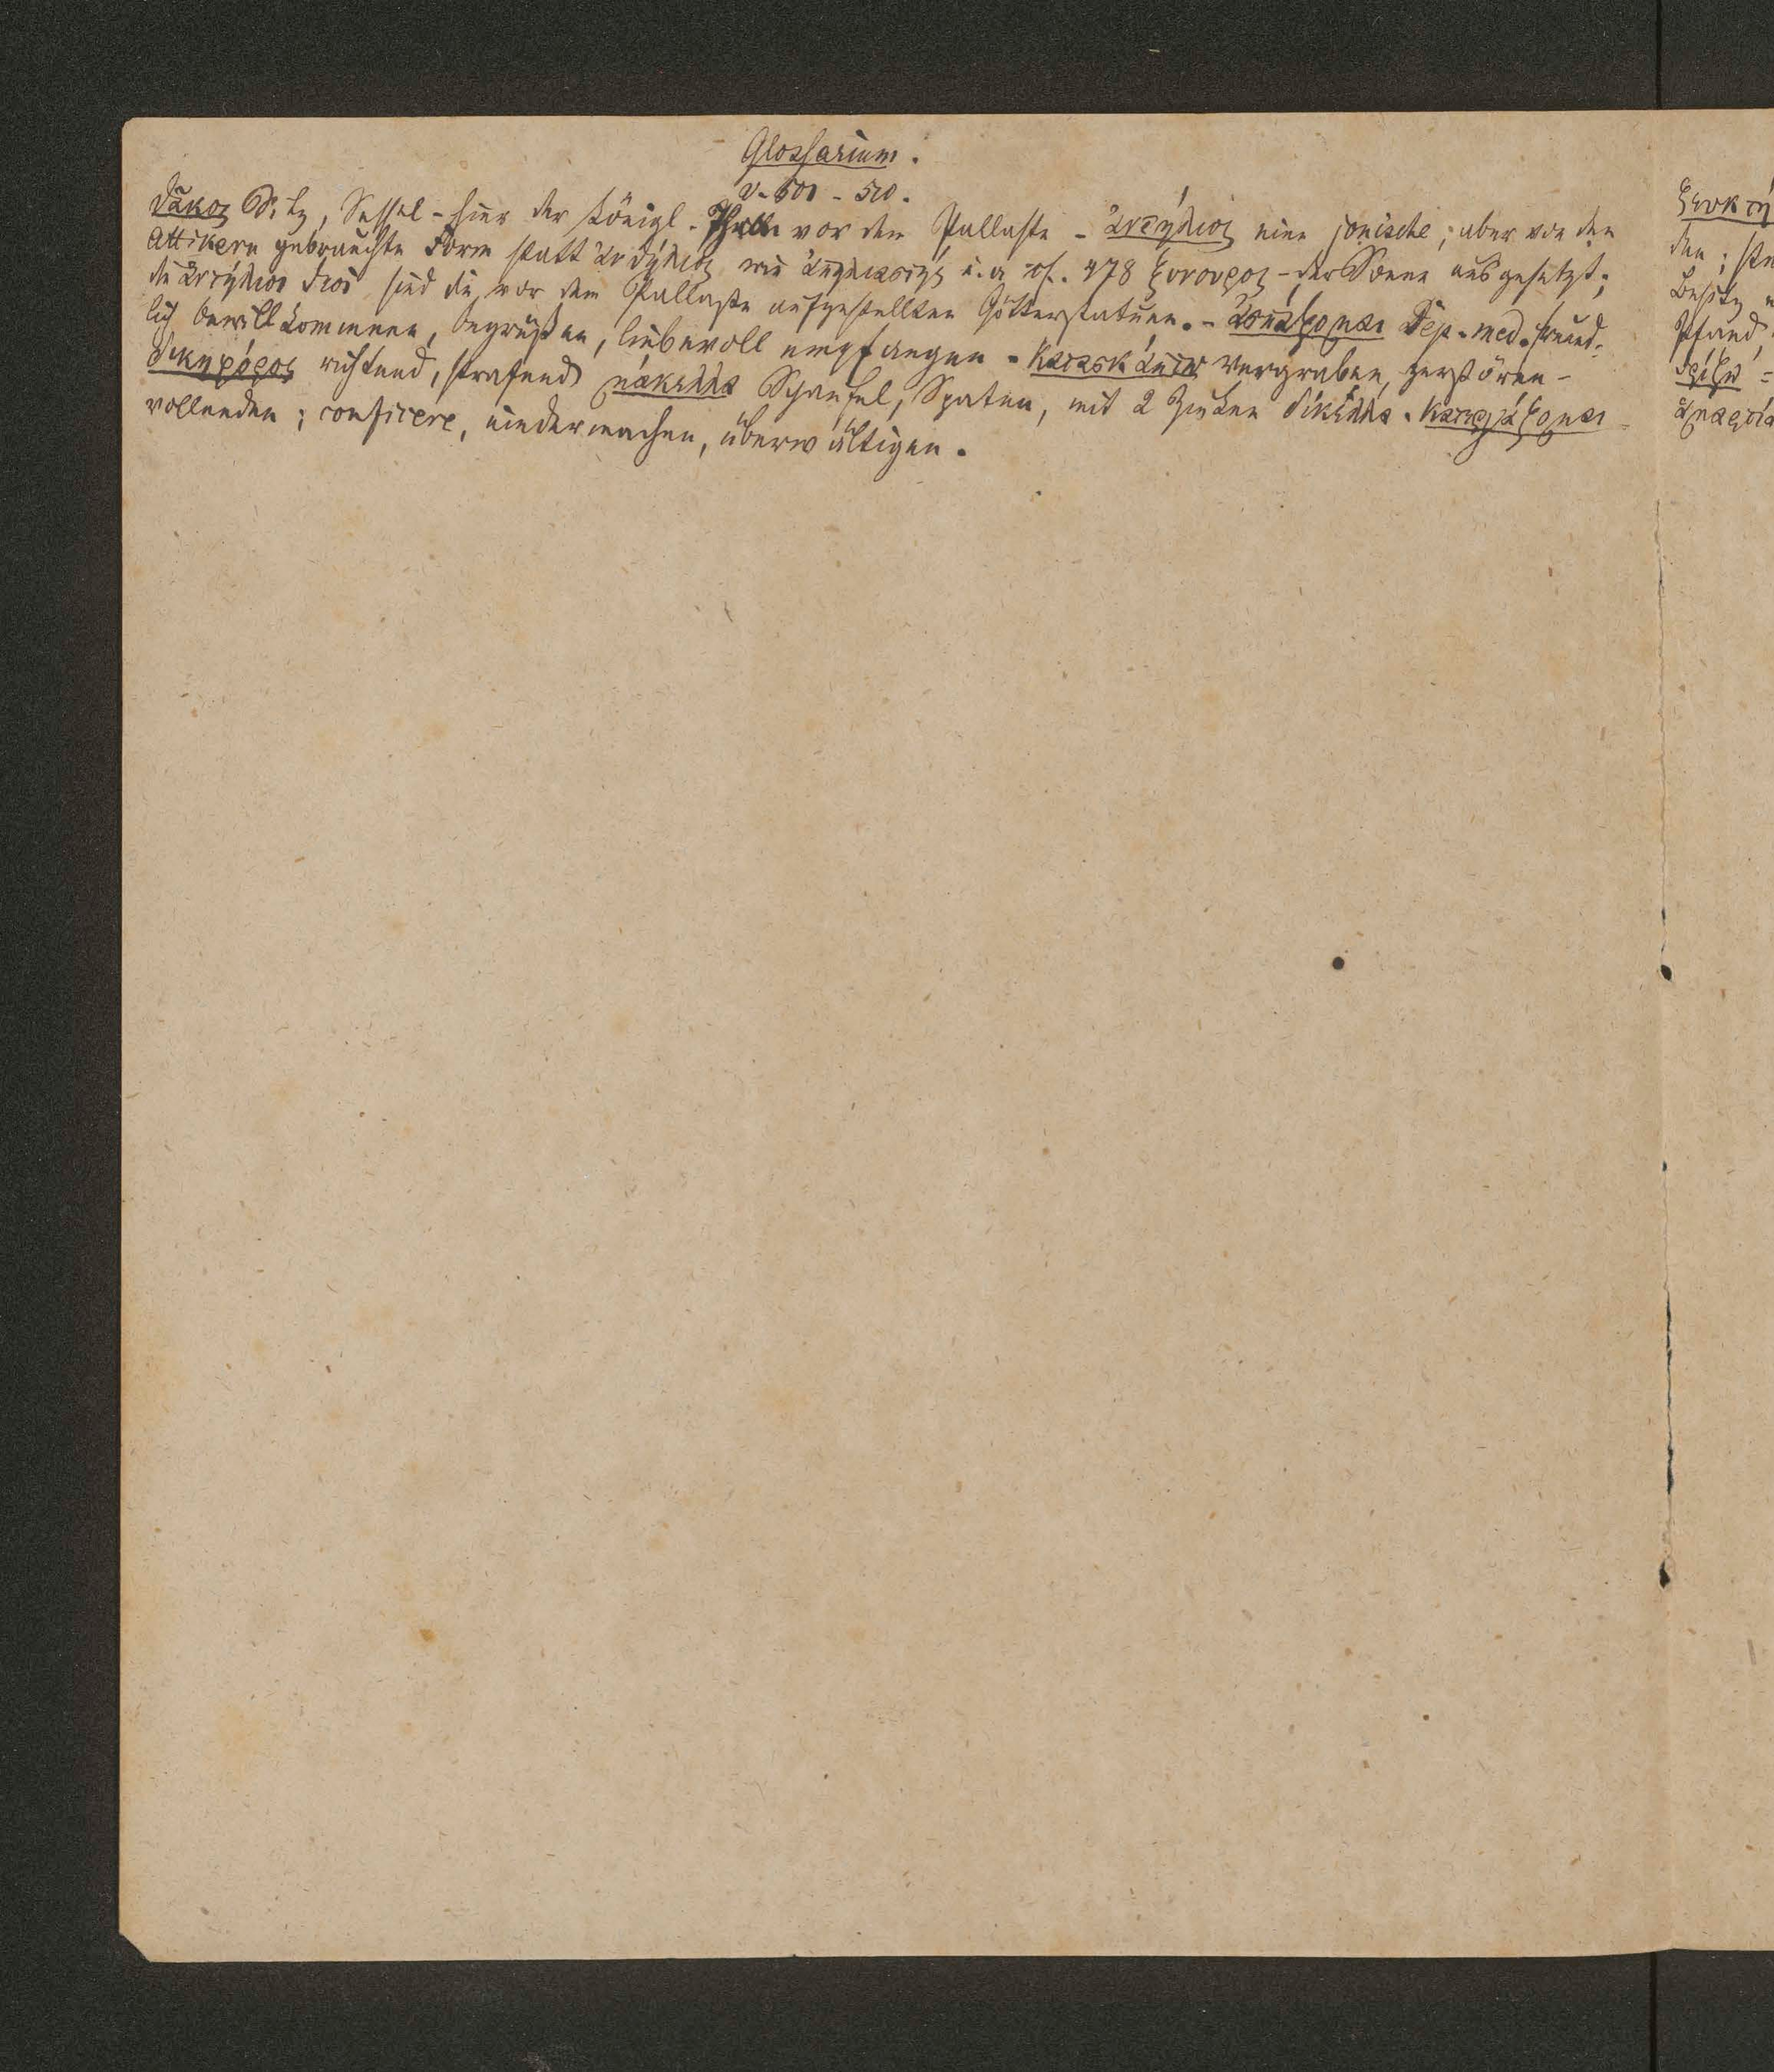 Glossarium.
v. 501 - 510.
θᾶκος Sitz, Sessel - hier der Königl. vor dem Pallaste - ἀντήλιος eine jonische, aber von den
Attikern gebrauchte Form statt ἀνθήλιος wie ἀπηλιαστής u. a cf. 478 ξύνουρος - der Sonne ausgesetzt;
die ἀντήλιοι θεοί sind die vor dem Pallaste aufgestellten Götterstatuen. - ἀσπάζομαι Dep. med. freund-
lich bewillkommnen, begrüßen, liebevoll empfangen - κατασκάπτω vergraben, zerstören -
δικηφόρος richtend, strafend μάκελλα Schaufel, Spaten, mit 2 Zinken δίκελλα. κατεργάζομαι
vollenden; conficere, niedermachen, überwältigen.
den; 
Besitz
Pfand,